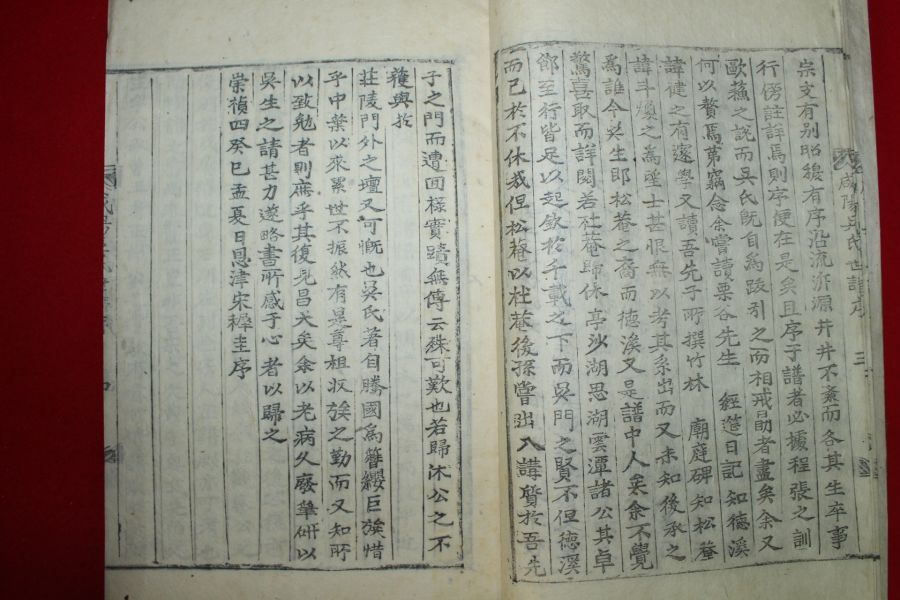 宗支有別昭穆有序沿流泝源井井不紊而各其生卒事
行傍註詳焉則序便在是矣且序于譜者必據程張之訓
歐蘇之說而吳氏旣自爲跋引之而相戒勗者盡矣余又
何以贅焉第竊念余嘗讀栗谷先生 經筵日記知德溪
諱健之有邃學又讀吾先子所撰竹林 廟庭碑知松菴
諱斗煩之爲望士甚恨無以考其系出而又未知後承之
爲誰今吳生卽松菴之裔而德溪又是譜中人矣余不覺
驚喜取而詳閱若杜菴歸休亭沙湖思湖雲潭諸公其卓
節至行皆足以起欽於千載之下而吳門之賢不但德溪
而已於不休哉但松菴以杜菴後孫嘗出入講質於吾先
子之門而遭回祿實蹟無傳云殊可歎也若歸休公之不
獲與於
莊陵門外之壇又可慨也吳氏著自勝國爲簪纓巨族惜
乎中葉以來累世不振然有是尊祖收族之勤而又知所
以致勉者則庶乎其復見昌大矣余以老病久廢筆硏以
吳生之請甚力遂略書所感于心者以歸之
崇禎四癸巳孟夏日恩津宋穉圭序
咸陽吳氏世譜序
三